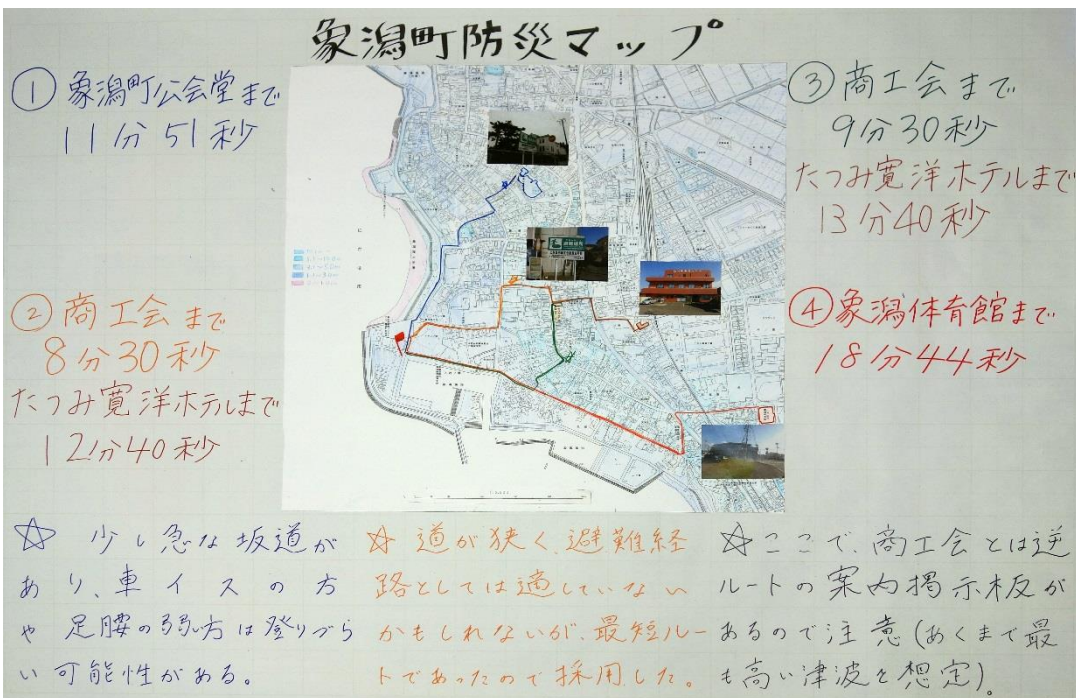 象潟町防災マップ
① 象潟町公会堂まで
11分51秒
② 商工会まで
8分30秒
たつみ寛洋ホテルまで
12分40秒
③ 商工会まで
9分30秒
たつみ寛洋ホテルまで
13分40秒
④ 象潟体育館まで
18分44秒
☆ 少し急な坂道が
あり、車イスの方
や足腰の弱い方は登りづら
い可能性がある。
☆ 道が狭く、避難経
路としては適していない
かもしれないが、最短ルー
トであったので採用した。
☆ ここで、商工会とは逆
ルートの案内掲示板が
あるので注意(あくまで最
も高い津波を想定)。